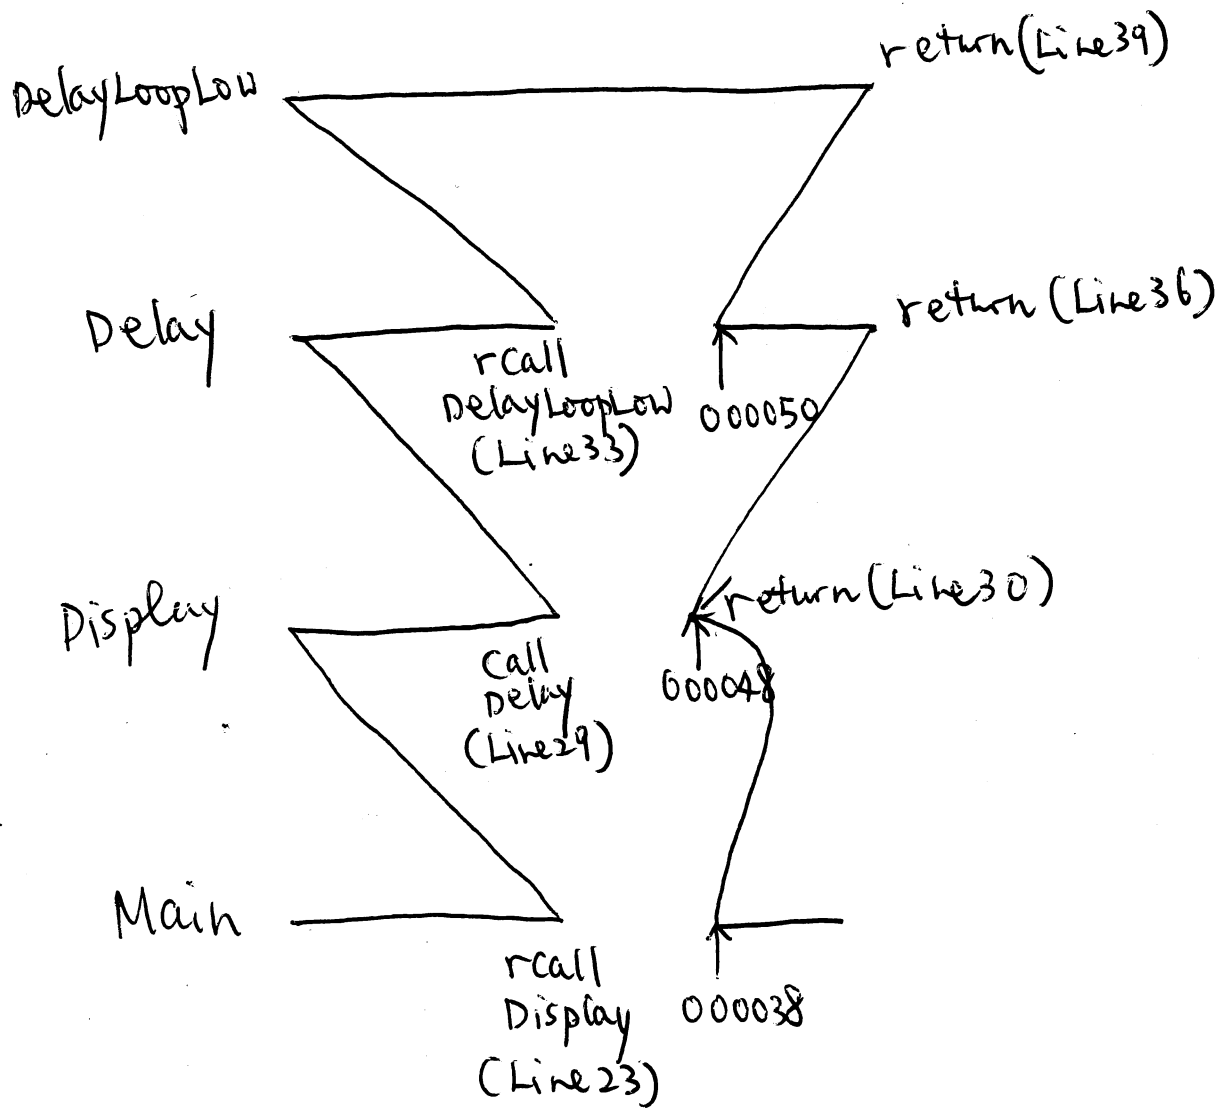 return(Line39)
DelayLoopLow
return (Line36)
Delay
rcall
DelayLoopLow
(Line33)
000050
return(Line30)
Display
call
Delay
(Line29)
000048
Main
rcall
Display
(Line23)
000038